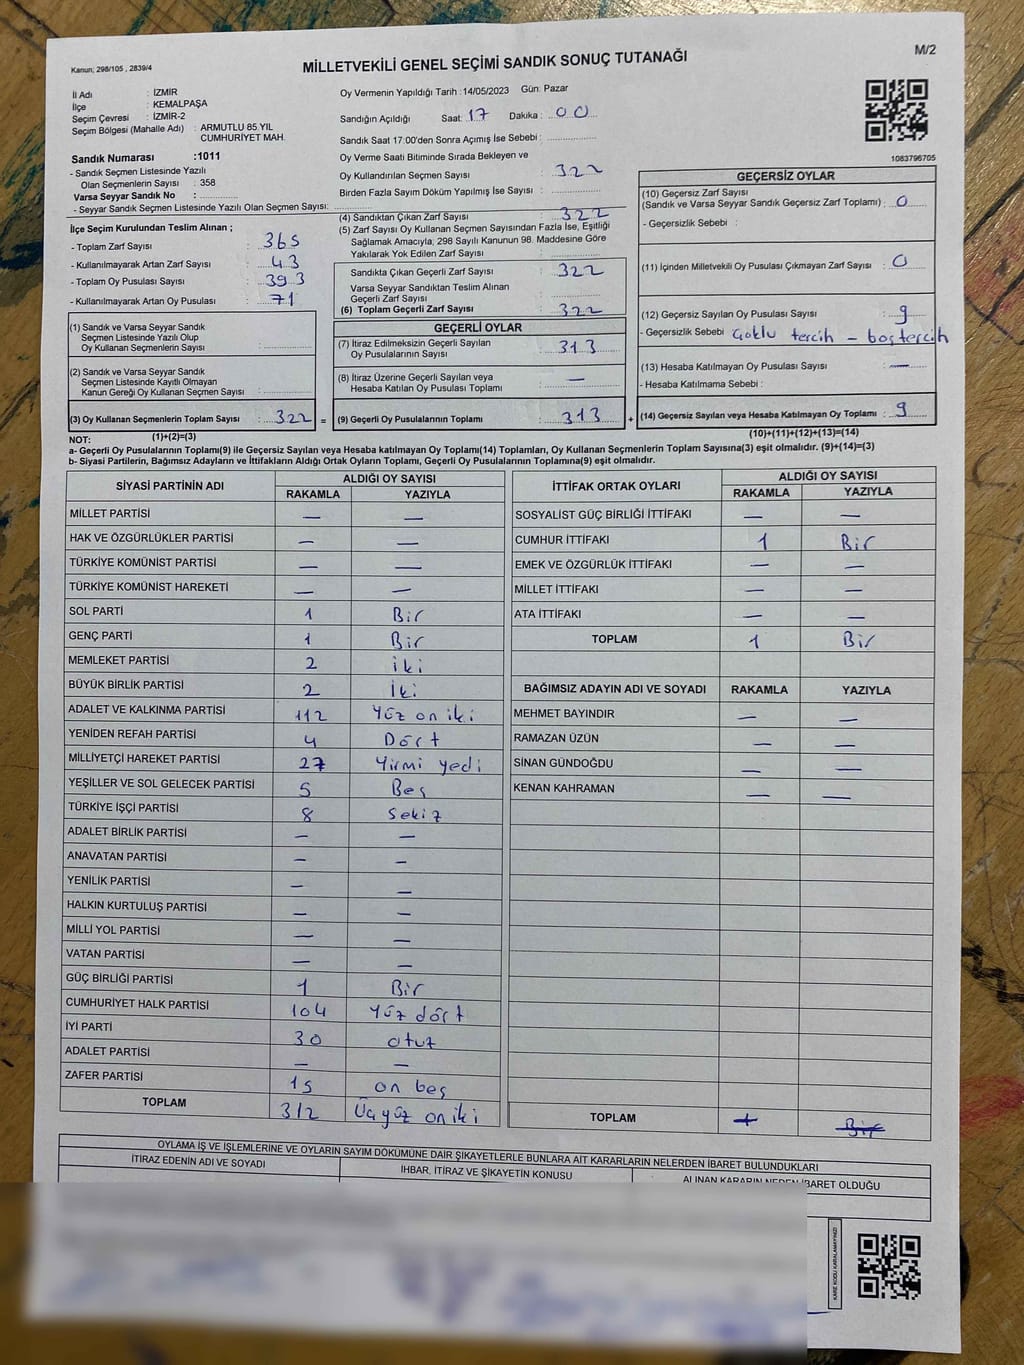 Kanun; 298/105 , 2839/4
MİLLETVEKİLİ GENEL SEÇİMİ SANDIK SONUÇ TUTANAĞI
M/2
İl Adı : İZMİR
İlçe : KEMALPAŞA
Seçim Çevresi : İZMİR-2
Seçim Bölgesi (Mahalle Adı) : ARMUTLU 85.YIL
CUMHURİYET MAH.
Sandık Numarası :1011
- Sandık Seçmen Listesinde Yazılı
Olan Seçmenlerin Sayısı : 358
Varsa Seyyar Sandık No :
- Seyyar Sandık Seçmen Listesinde Yazılı Olan Seçmen Sayısı:
Oy Vermenin Yapıldığı Tarih :14/05/2023 Gün: Pazar
Sandığın Açıldığı Saat: 17 Dakika : 00
Sandık Saat 17:00'den Sonra Açımış İse Sebebi :
Oy Verme Saati Bitiminde Sırada Bekleyen ve
Oy Kullandırılan Seçmen Sayısı : 322
Birden Fazla Sayım Döküm Yapılmış İse Sayısı :
1083796705
İlçe Seçim Kurulundan Teslim Alınan ;
- Toplam Zarf Sayısı : 365
- Kullanılmayarak Artan Zarf Sayısı : 43
- Toplam Oy Pusulası Sayısı : 393
- Kullanılmayarak Artan Oy Pusulası : 71
(1) Sandık ve Varsa Seyyar Sandık
Seçmen Listesinde Yazılı Olup
Oy Kullanan Seçmenlerin Sayısı :
(2) Sandık ve Varsa Seyyar Sandık
Seçmen Listesinde Kayıtlı Olmayan
Kanun Gereği Oy Kullanan Seçmen Sayısı :
(3) Oy Kullanan Seçmenlerin Toplam Sayısı : 322 =
(4) Sandıktan Çıkan Zarf Sayısı : 322
(5) Zarf Sayısı Oy Kullanan Seçmen Sayısından Fazla İse, Eşitliği
Sağlamak Amacıyla, 298 Sayılı Kanunun 98. Maddesine Göre
Yakılarak Yok Edilen Zarf Sayısı :
Sandıkta Çıkan Geçerli Zarf Sayısı : 322
Varsa Seyyar Sandıktan Teslim Alınan
Geçerli Zarf Sayısı :
(6) Toplam Geçerli Zarf Sayısı : 322
GEÇERLİ OYLAR
(7) İtiraz Edilmeksizin Geçerli Sayılan
Oy Pusulalarının Sayısı : 313
(8) İtiraz Üzerine Geçerli Sayılan veya
Hesaba Katılan Oy Pusulası Toplamı : —
(9) Geçerli Oy Pusulalarının Toplamı : 313 +
GEÇERSİZ OYLAR
(10) Geçersiz Zarf Sayısı
(Sandık ve Varsa Seyyar Sandık Geçersiz Zarf Toplamı) : 0
- Geçersizlik Sebebi :
(11) İçinden Milletvekili Oy Pusulası Çıkmayan Zarf Sayısı : 0
(12) Geçersiz Sayılan Oy Pusulası Sayısı : 9
- Geçersizlik Sebebi Çoklu tercih - boş tercih
(13) Hesaba Katılmayan Oy Pusulası Sayısı : —
- Hesaba Katılmama Sebebi :
(14) Geçersiz Sayılan veya Hesaba Katılmayan Oy Toplamı : 9
(1)+(2)=(3)
(10)+(11)+(12)+(13)=(14)
NOT:
a- Geçerli Oy Pusulalarının Toplamı(9) ile Geçersiz Sayılan veya Hesaba katılmayan Oy Toplamı(14) Toplamları, Oy Kullanan Seçmenlerin Toplam Sayısına(3) eşit olmalıdır. (9)+(14)=(3)
b- Siyasi Partilerin, Bağımsız Adayların ve İttifakların Aldığı Ortak Oyların Toplamı, Geçerli Oy Pusulalarının Toplamına(9) eşit olmalıdır.
SİYASİ PARTİNİN ADI ALDIĞI OY SAYISI
RAKAMLA YAZIYLA
MİLLET PARTİSİ — —
HAK VE ÖZGÜRLÜKLER PARTİSİ — —
TÜRKİYE KOMÜNİST PARTİSİ — —
TÜRKİYE KOMÜNİST HAREKETİ — —
SOL PARTİ 1 Bir
GENÇ PARTİ 1 Bir
MEMLEKET PARTİSİ 2 iki
BÜYÜK BİRLİK PARTİSİ 2 iki
ADALET VE KALKINMA PARTİSİ 112 Yüz on iki
YENİDEN REFAH PARTİSİ 4 Dört
MİLLİYETÇİ HAREKET PARTİSİ 27 Yirmi yedi
YEŞİLLER VE SOL GELECEK PARTİSİ 5 Beş
TÜRKİYE İŞÇİ PARTİSİ 8 Sekiz
ADALET BİRLİK PARTİSİ — —
ANAVATAN PARTİSİ — —
YENİLİK PARTİSİ — —
HALKIN KURTULUŞ PARTİSİ — —
MİLLİ YOL PARTİSİ — —
VATAN PARTİSİ — —
GÜÇ BİRLİĞİ PARTİSİ 1 Bir
CUMHURİYET HALK PARTİSİ 104 Yüz dört
İYİ PARTİ 30 otuz
ADALET PARTİSİ — —
ZAFER PARTİSİ 15 on beş
TOPLAM 312 Üçyüz on iki
İTTİFAK ORTAK OYLARI ALDIĞI OY SAYISI
RAKAMLA YAZIYLA
SOSYALİST GÜÇ BİRLİĞİ İTTİFAKI — —
CUMHUR İTTİFAKI 1 Bir
EMEK VE ÖZGÜRLÜK İTTİFAKI — —
MİLLET İTTİFAKI — —
ATA İTTİFAKI — —
TOPLAM 1 Bir
BAĞIMSIZ ADAYIN ADI VE SOYADI RAKAMLA YAZIYLA
MEHMET BAYINDIR — —
RAMAZAN ÜZÜN — —
SİNAN GÜNDOĞDU — —
KENAN KAHRAMAN — —
TOPLAM 1 Bir
OYLAMA İŞ VE İŞLEMLERİNE VE OYLARIN SAYIM DÖKÜMÜNE DAİR ŞİKAYETLERLE BUNLARA AİT KARARLARIN NELERDEN İBARET BULUNDUKLARI
İTİRAZ EDENİN ADI VE SOYADI İHBAR, İTİRAZ VE ŞİKAYETİN KONUSU ALINAN KARARIN NEDEN İBARET OLDUĞU
KARE KODU KARALAMAYINIZ!